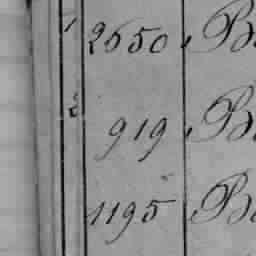 1 2650 B
2 919 B
1195 B